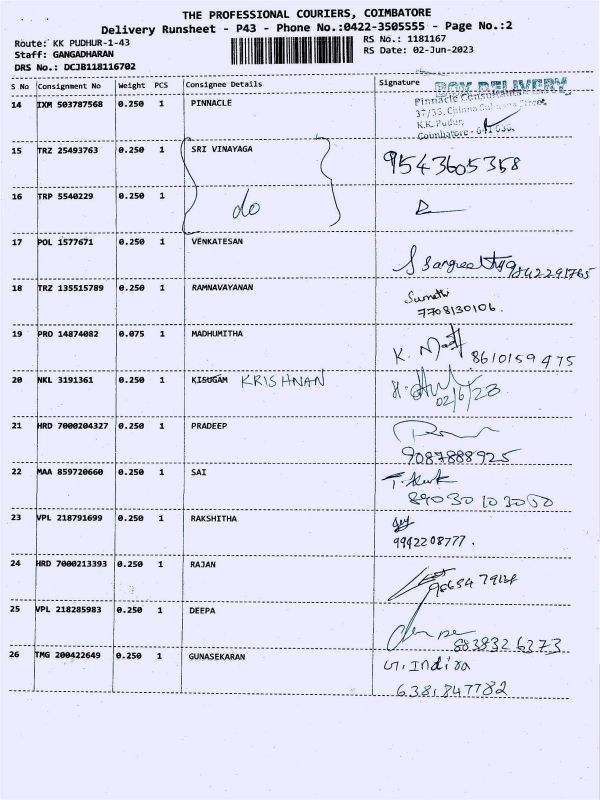 THE PROFESSIONAL COURIERS, COIMBATORE
Delivery Runsheet - P43 - Phone No.:0422-3505555 - Page No.:2
Route: KK PUDHUR-1-43
RS No.: 1181167
Staff: GANGADHARAN
RS Date: 02-Jun-2023
DRS No.: DCJB118116702
S No Consignment No Weight PCS Consignee Details Signature
BOY DELIVERY
14 IXM 503787568 0.250 1 PINNACLE
Pinnacle
37/35, Chinna
K.K. Pudur,
Coimbatore
15 TRZ 25493763 0.250 1 SRI VINAYAGA 9543605358
16 TRP 5540229 0.250 1 do
17 POL 1577671 0.250 1 VENKATESAN
9842291765
18 TRZ 135515789 0.250 1 RAMNAVAYANAN Sumathi
7708130106.
19 PRO 14874082 0.075 1 MADHUMITHA
K. 8610159475
20 NKL 3191361 0.250 1 KISUGAM KRISHNAN
02/6/23
21 HRD 7000204327 0.250 1 PRADEEP
9087888925
22 MAA 859720660 0.250 1 SAI
89030103050
23 VPL 218791699 0.250 1 RAKSHITHA
9942208777.
24 HRD 7000213393 0.250 1 RAJAN
25 VPL 218285983 0.250 1 DEEPA
8838326373
26 TMG 200422649 0.250 1 GUNASEKARAN G. Indira
6381847782